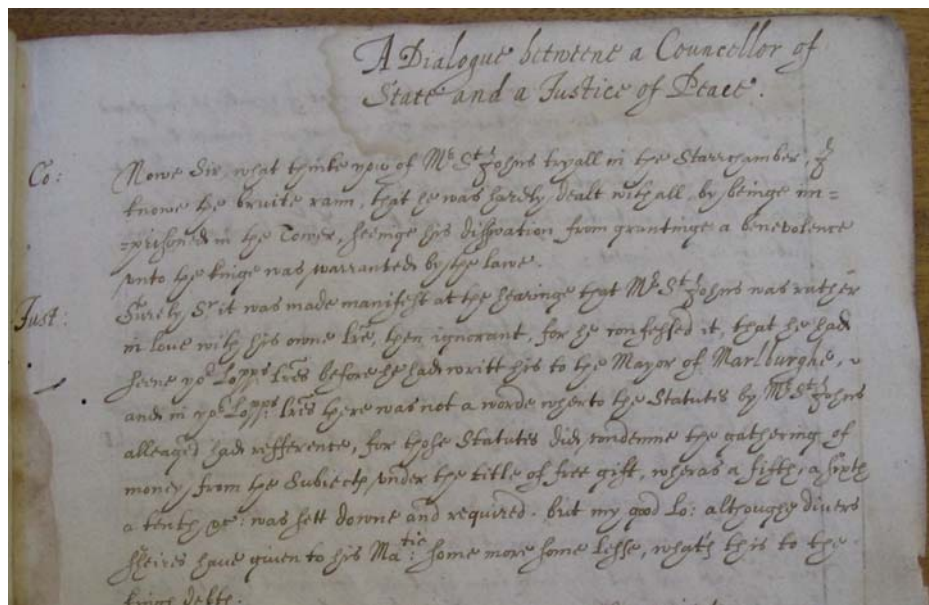 A Dialogue betweene a Councellor of
State and a Justice of Peace.
Co: Nowe Sir, what thinke yow of Mr St Johns tryall in the Starrchamber, I
knowe the bruite rann, that he was hardly dealt withall, by beinge im=
=prisoned in the Tower, seeinge his disswation from grantinge a benevolence
vnto the kinge was warranted by the lawe.
Just: Surely Sr it was made manifest at the hearinge that Mr St Johns was rather
in love with his owne lre, then ignorant, for he confessed it, that he had
seene yor Lopps lres before he had writt his to the Mayor of Marlburghe,
and in yor Lopps: lres there was not a worde wherto the Statutes by Mr St Johns
alleaged had refference, for those Statutes did condemne the gathering of
money from the Subiects vnder the title of free gift, wheras a fifth, a sixth
a tenth &c: was sett downe and required. but my good Lo: althoughe divers
sheires have given to his Matie: some more some lesse, what's this to the
kings debts.